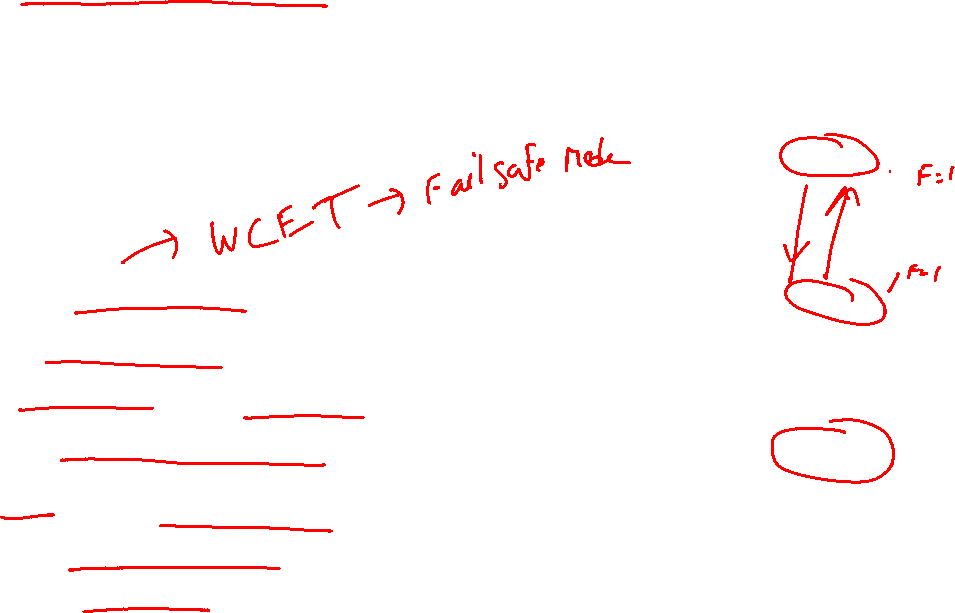 → WCET → Failsafe Mode
F=1
F=1